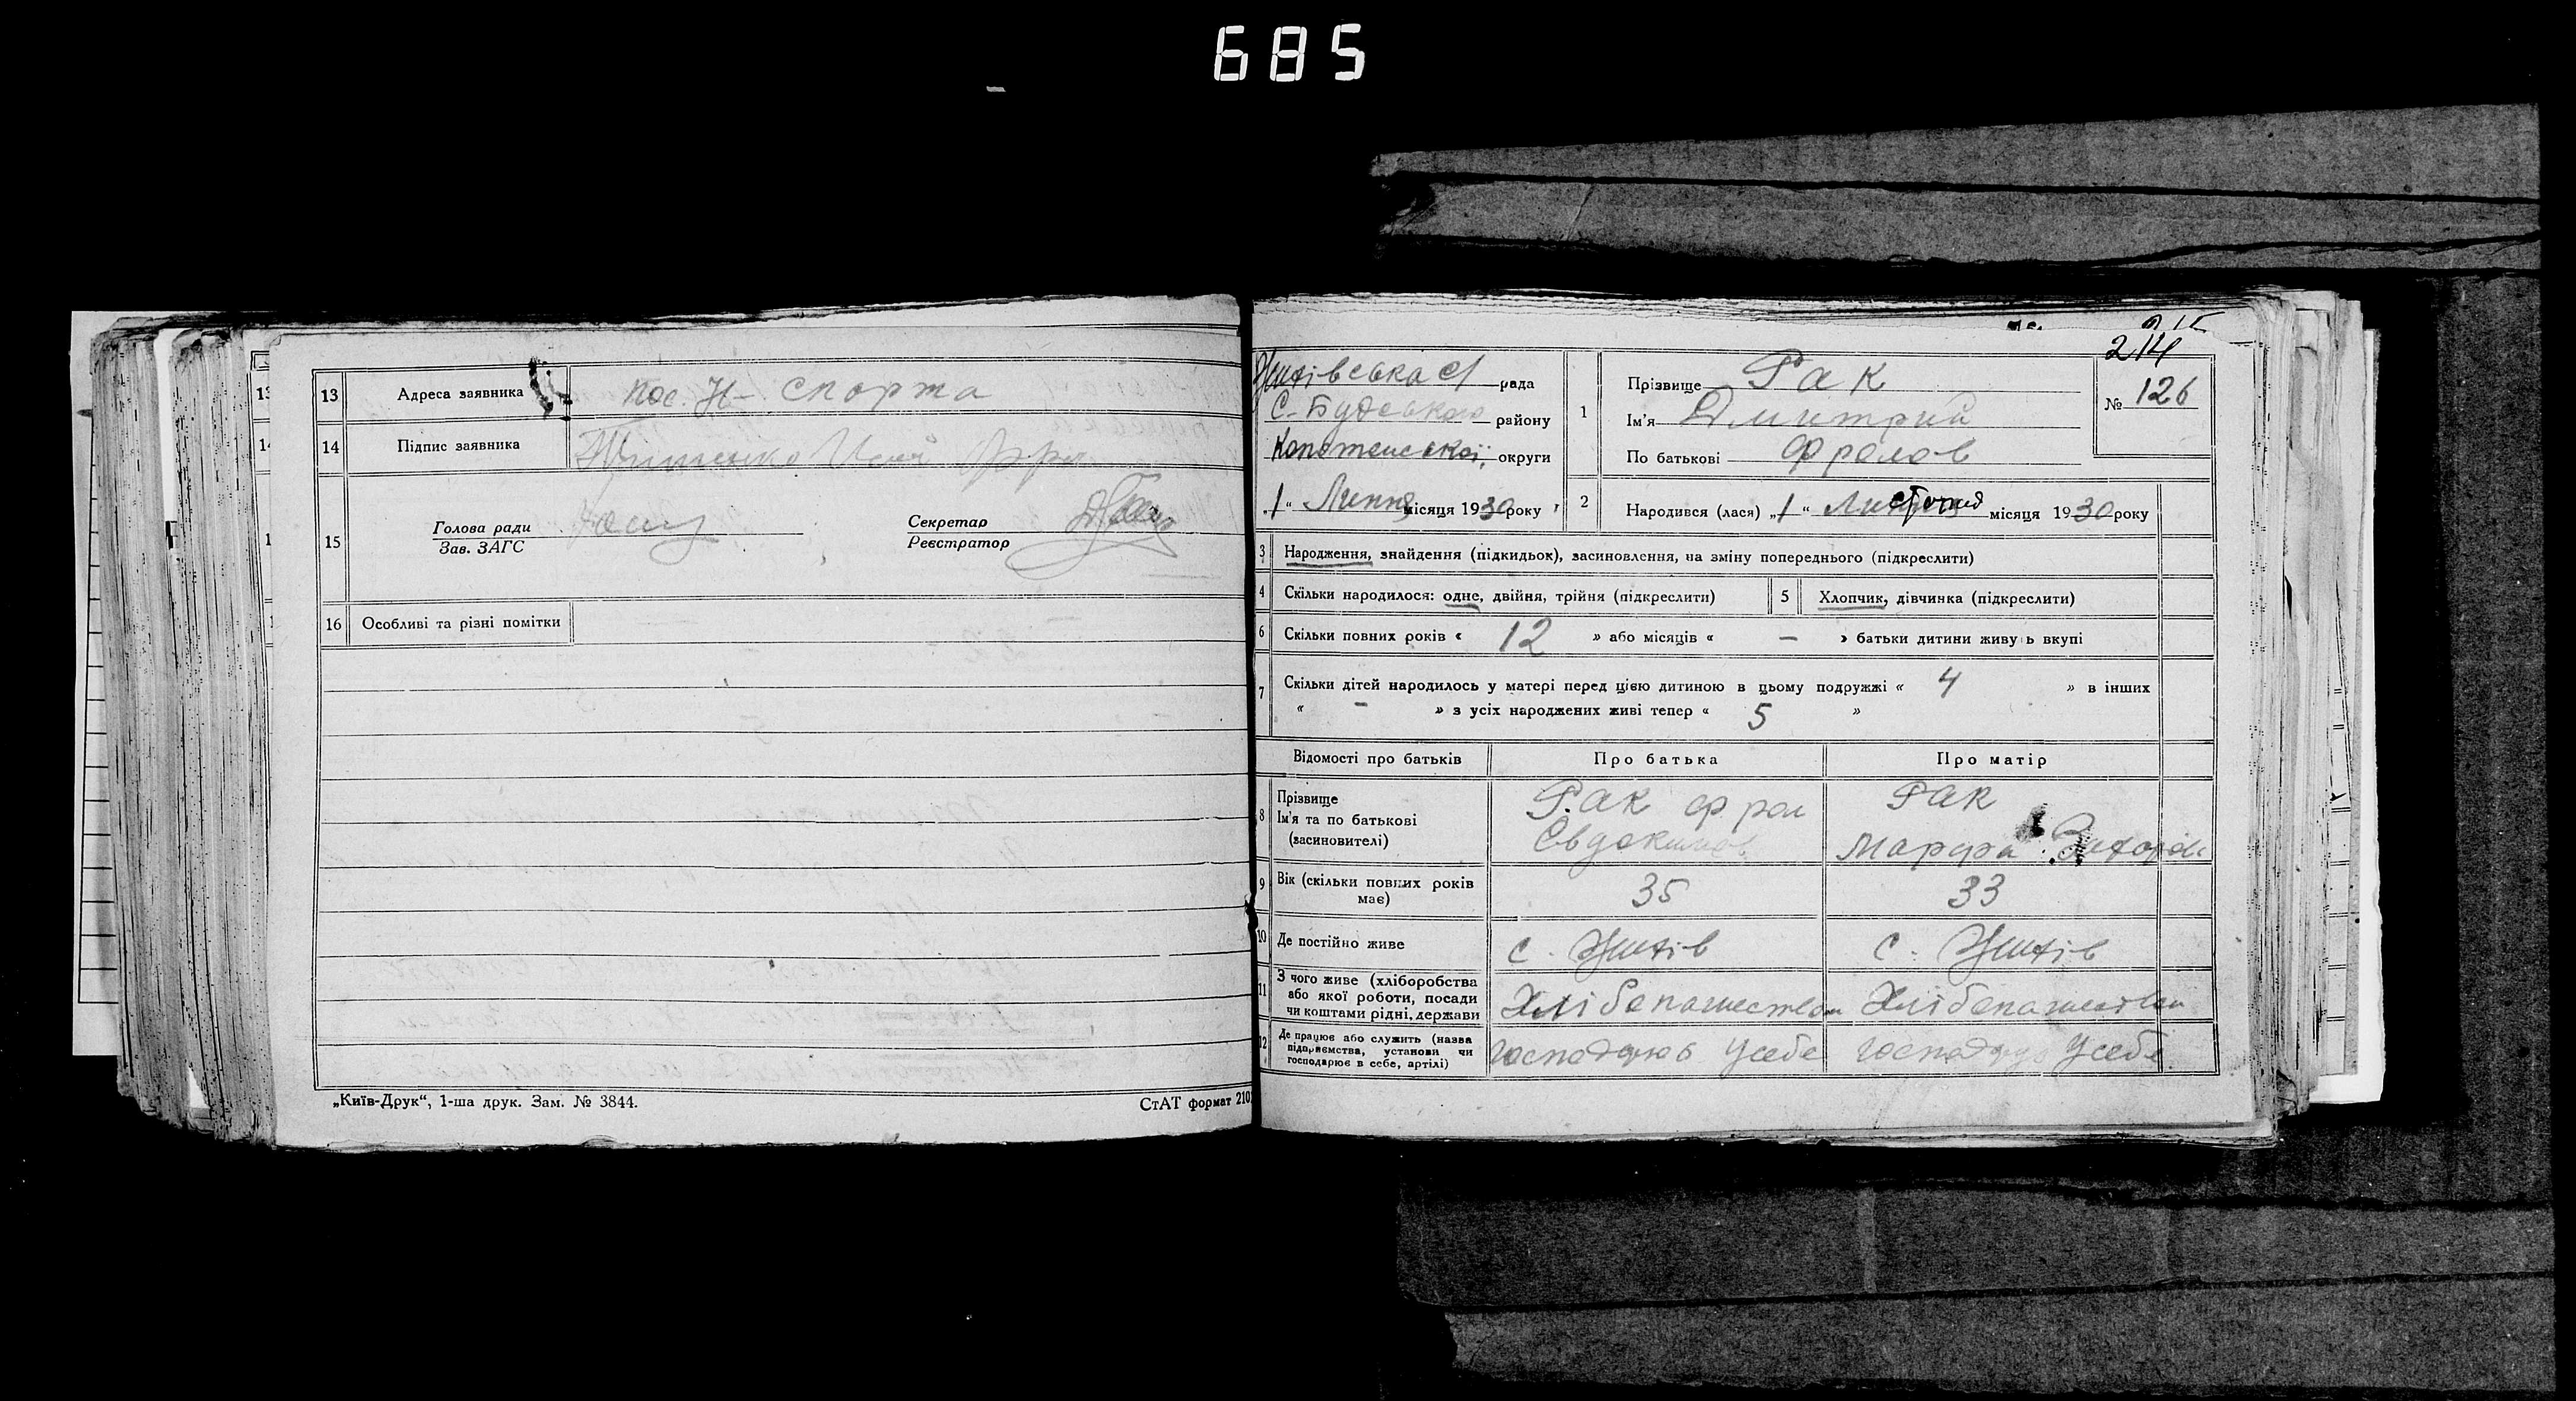 685
13 Адреса заявника пос. Н- спорта
14 Підпис заявника
15 Голова ради
Зав. ЗАГС
Секретар
Реєстратор
16 Особливі та різні помітки
„Київ-Друк“, 1-ша друк. Зам. № 3844.
СтАТ формат 210
214
№ 126
рада
С-Будського району
округи
„1“ Липня місяця 1930 року
1 Прізвище Рак
Ім'я Дмитрий
По батькові Фролов
2 Народився (лася) „1“ місяця 1930 року
3 Народження, знайдення (підкидьок), засиновлення, на зміну попереднього (підкреслити)
4 Скільки народилося: одне, двійня, трійня (підкреслити)
5 Хлопчик, дівчинка (підкреслити)
6 Скільки повних років « 12 » або місяців « – » батьки дитини живу ь вкупі
7 Скільки дітей народилось у матері перед цією дитиною в цьому подружжі « 4 » в інших
« – » з усіх народжених живі тепер « 5 »
Відомості про батьків Про батька Про матір
8 Прізвище
Ім'я та по батькові
(засиновителі)
Рак Фрол
Евдокимов
Рак
Марфа
9 Вік (скільки повних років
має)
35
33
10 Де постійно живе
с.
с.
11 З чого живе (хліборобства
або якої роботи, посади
чи коштами рідні, держави
Хлібопашеством
Хлібопашеством
12 Де працює або служить (назва
підприємства, установи чи
господарює в себе, артілі)
господарює у себе
у себе